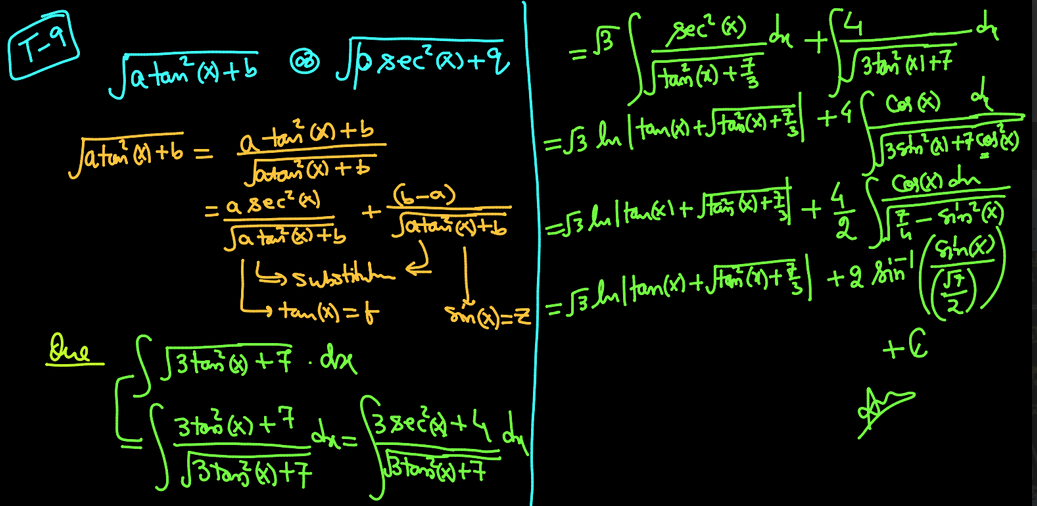 T-9
√(a tan²(x) + b) OR √(p sec²(x) + q)
√(a tan²(x) + b) = (a tan²(x) + b) / √(a tan²(x) + b)
= a sec²(x) / √(a tan²(x) + b) + (b - a) / √(a tan²(x) + b)
↳ substitution ↵
↳ tan(x) = t sin(x) = z
Que ∫ √(3 tan²(x) + 7) · dx
= ∫ (3 tan²(x) + 7) / √(3 tan²(x) + 7) dx = ∫ (3 sec²(x) + 4) / √(3 tan²(x) + 7) dx
= √3 ∫ sec²(x) / √(tan²(x) + 7/3) dx + ∫ 4 / √(3 tan²(x) + 7) dx
= √3 ln |tan(x) + √(tan²(x) + 7/3)| + 4 ∫ cos(x) dx / √(3 sin²(x) + 7 cos²(x))
= √3 ln |tan(x) + √(tan²(x) + 7/3)| + 4/2 ∫ cos(x) dx / √(7/4 - sin²(x))
= √3 ln |tan(x) + √(tan²(x) + 7/3)| + 2 sin⁻¹ (sin(x) / (√7/2))
+ C